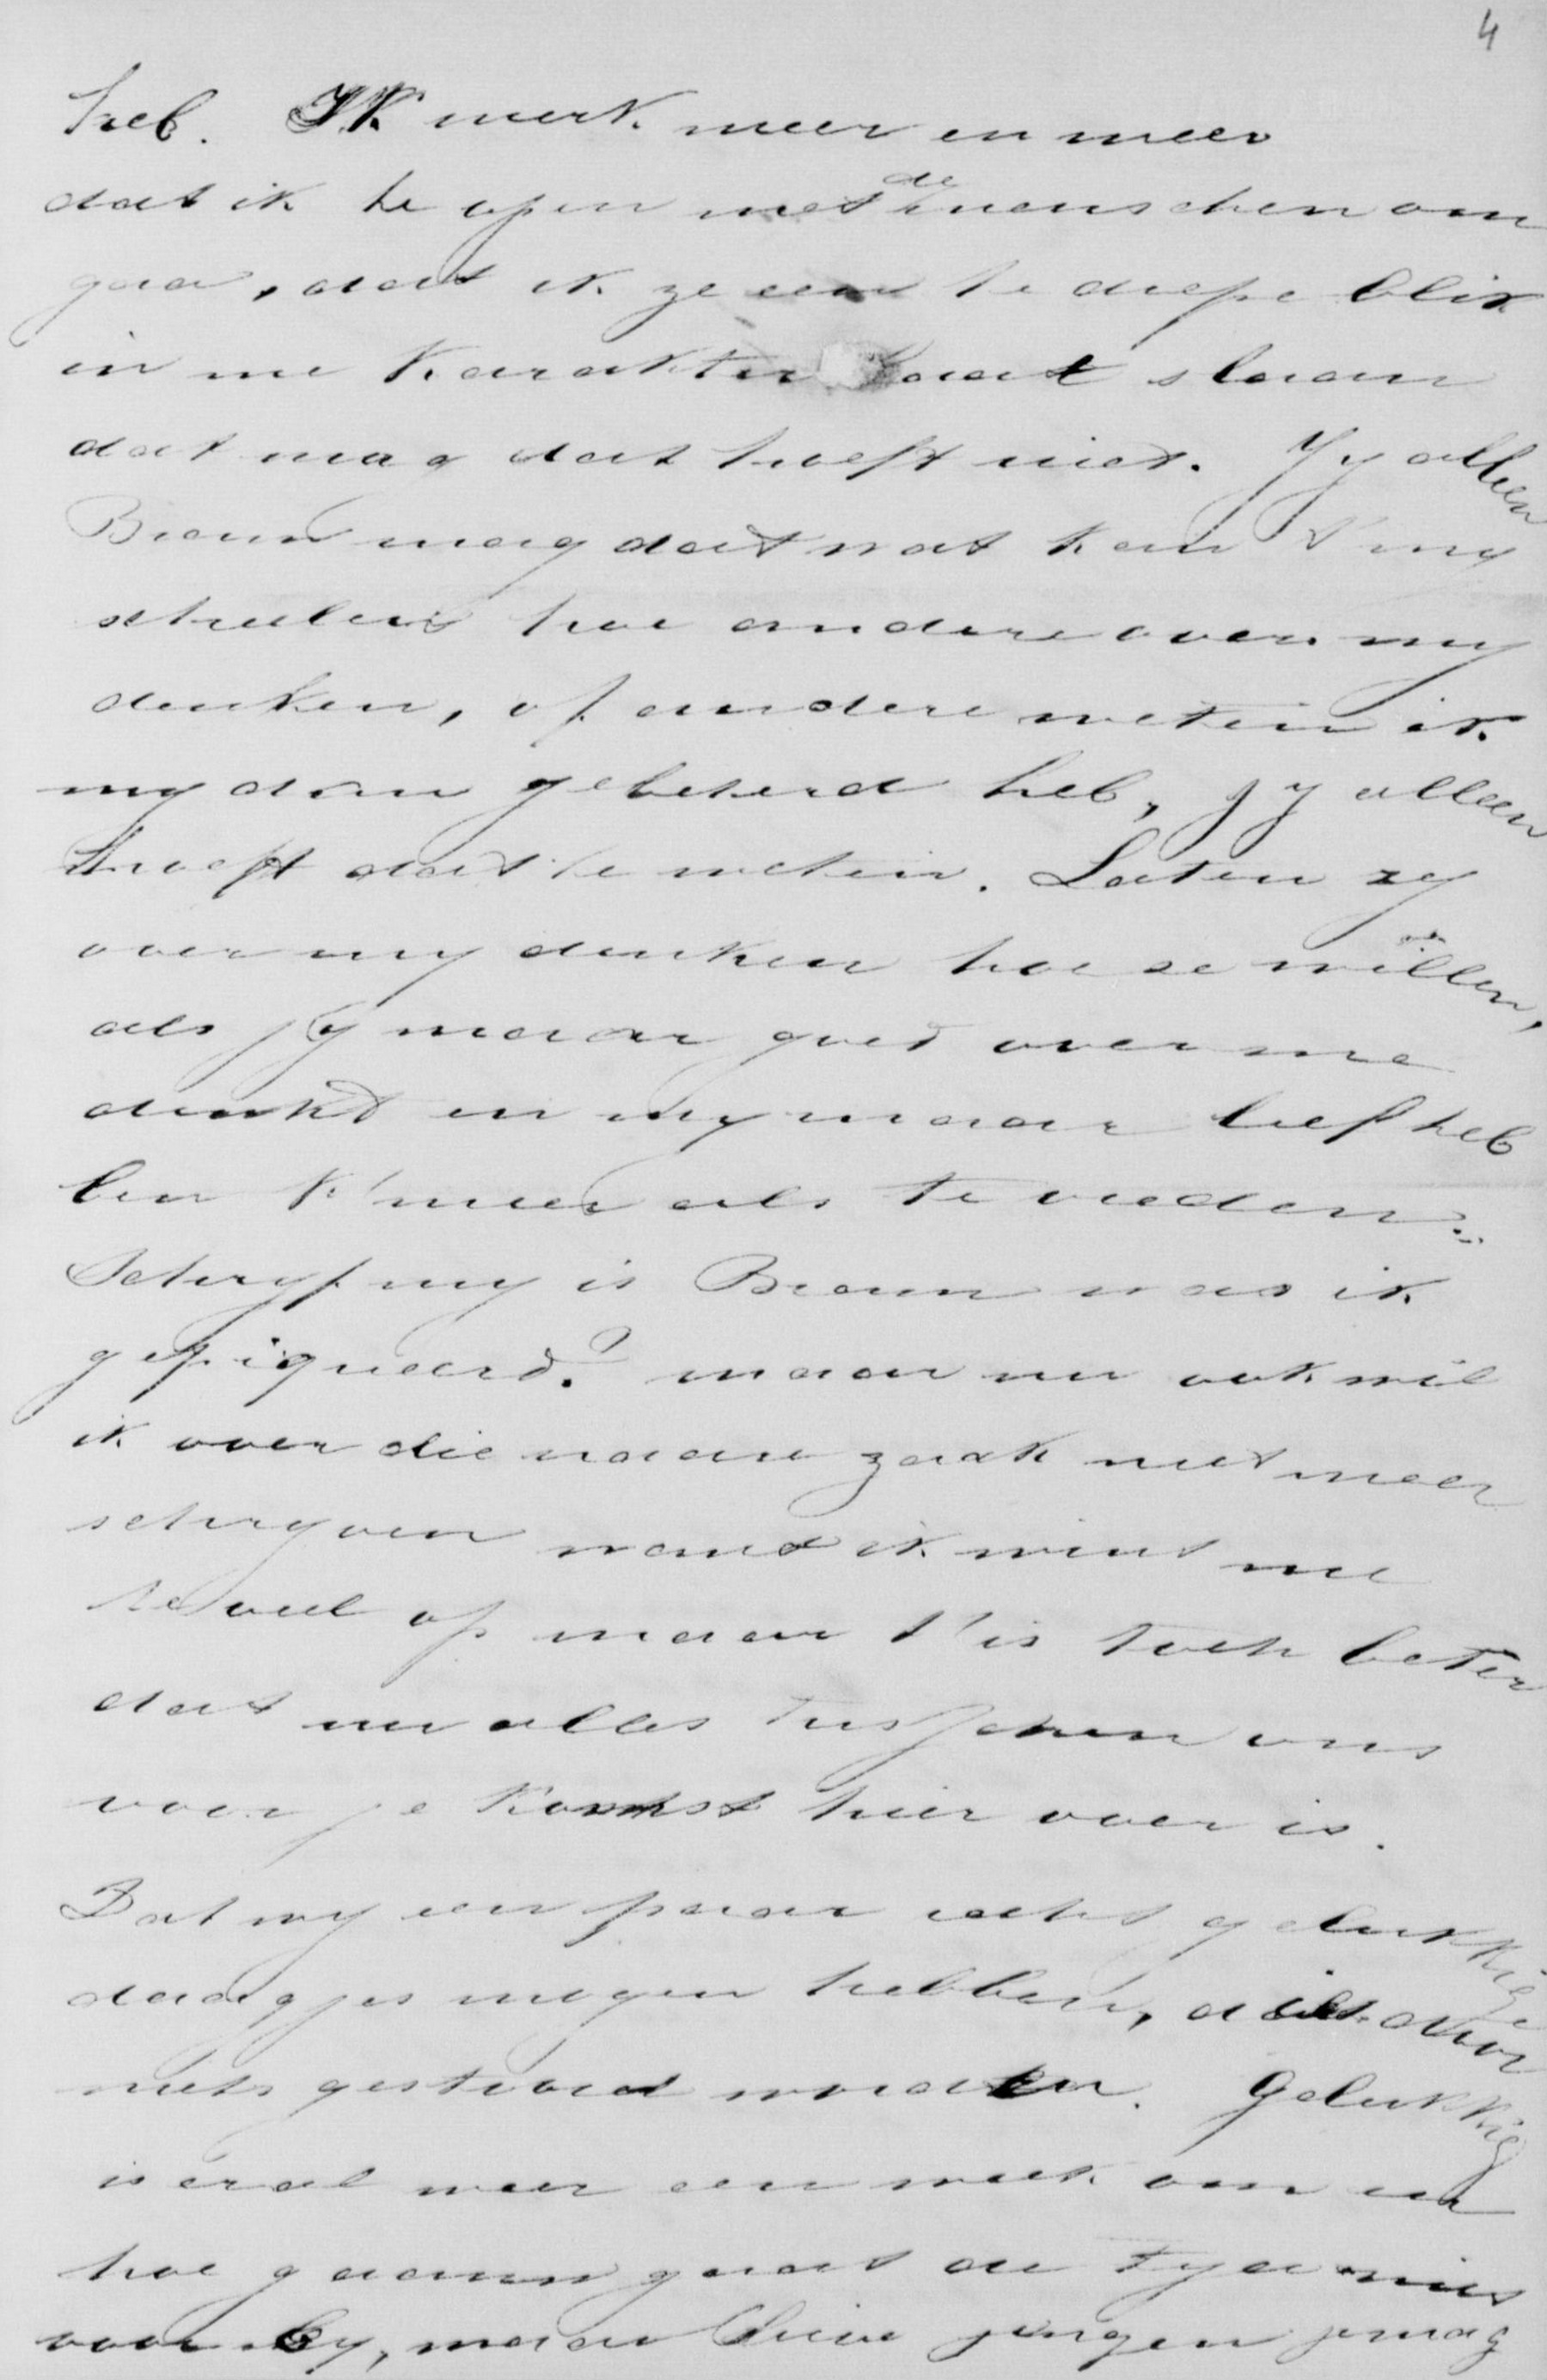 4
heb. IK merk meer en meer
dat ik te open met de menschen om
gaa, dat ik ze een te diepe blik
in me karakter laat slaan
dat mag dat hoeft niet. Jy alleen
Braun mag dat wat kan t my
schelen hoe andere over my
denken, of andere weten ik
my dan gebeterd heb, jy alleen
hoeft dat te weten. Laten zy
over my denken hoe ze willen,
als jy maar goed over me
denkt en my maar lief heb
ben k' meer als te vreden.
Schryf my is Braun was ik
gepiqueerd? maar nu ook wil
ik over die nare zaak niet meer
schryven want ik wint me
te veel op maar t' is toch beter
dat nu alles tusschen ons
voor je komst hier over is.
Dat wy een paar echt gelukkige
daagjes mogen hebben, die door
niets gestoord worden. Gelukkig
is er al weer een week om en
hoe gaann gaat de tyd niet
voor by, maar lieve jongen je mag